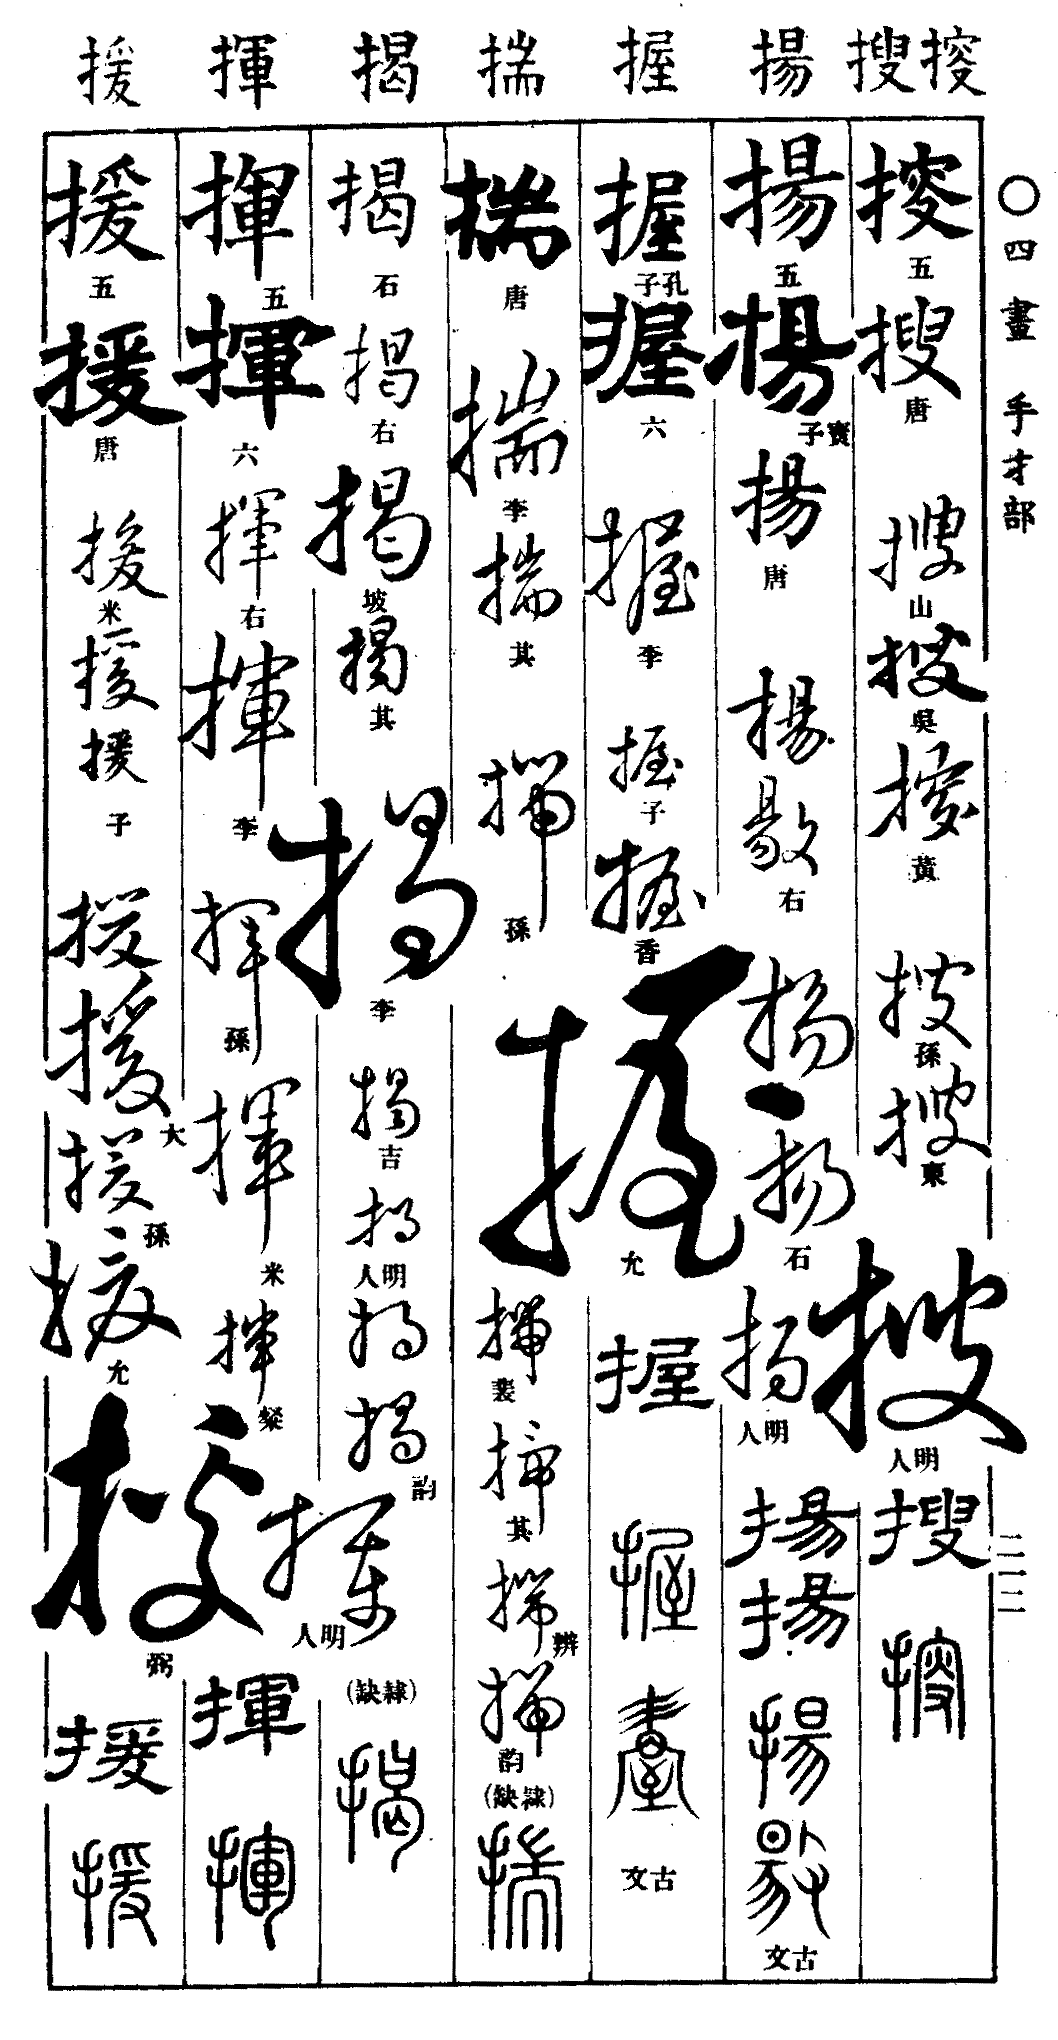 〇四畫 手才部
二一二
搜 揚 握 揣 揭 揮 援
五
搜
唐
搜
山
搜
吳
搜
黃
搜
孫
搜
東
搜
明人
搜
搜
揚
五
揚
子寶
揚
唐
揚
敭
右
揚
揚
石
揚
明人
揚
揚
揚
敭
古文
握
孔子
握
六
握
李
握
子
握
香
握
允
握
握
古文
揣
唐
揣
李
揣
其
揣
孫
揣
裴
揣
其
揣
辨
揣
韵
(隸缺)
揣
揭
石
揭
右
揭
坡
揭
其
揭
李
揭
吉
揭
明人
揭
揭
韵
(隸缺)
揭
揮
五
揮
六
揮
右
揮
李
揮
孫
揮
米
揮
粲
揮
明人
揮
揮
援
五
援
唐
援
米
援
援
子
援
援
大
援
孫
援
允
援
弼
援
援